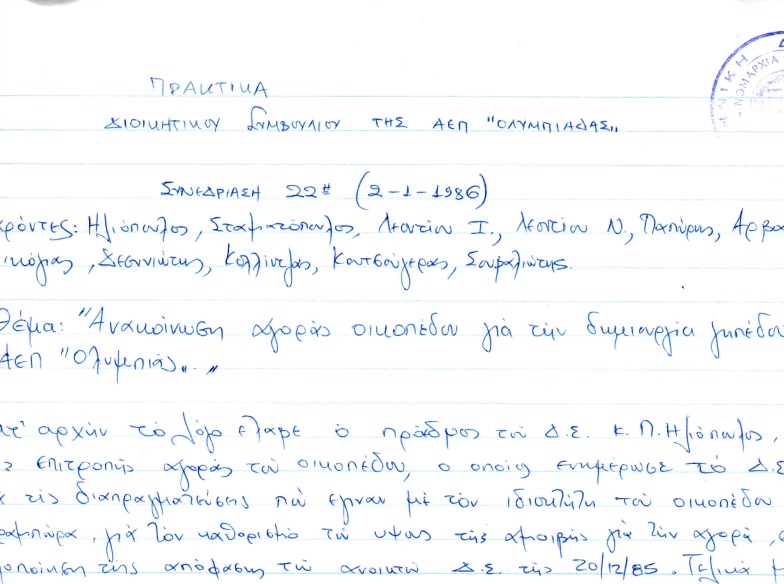 ΠΡΑΚΤΙΚΑ
ΔΙΟΙΚΗΤΙΚΟΥ ΣΥΜΒΟΥΛΙΟΥ ΤΗΣ ΑΕΠ "ΟΛΥΜΠΙΑΔΑΣ"
ΝΙΚΗ Δ
ΝΟΜΑΡΧΙΑ
ΣΥΝΕΔΡΙΑΣΗ 22η (2-1-1986)
ρόντες: Ηλιόπουλος, Σταματόπουλος, Λεοντίου Ι., Λεοντίου Ν., Παπύρης, Αρβα
Δεσννιώτης, Κολλίντζας, Κουτσαύγερας, Σουβαλιώτης.
θέμα: "Ανακοίνωση αγοράς οικοπέδου γιά την δημιουργία γηπέδου
ΑΕΠ "Ολυμπιάς"."
ατ' αρχήν τό λόγο έλαβε ο πρόεδρος του Δ.Σ. κ. Π. Ηλιόπουλος,
ς επιτροπής αγοράς του οικοπέδου, ο οποίος ενημέρωσε τό Δ.Σ
τις διαπραγματεύσεις πού έγιναν μέ τον ιδιοκτήτη του οικοπέδου
γιά τον καθορισμό του ύψους της αμοιβής γιά την αγορά,
οποίηση της απόφασης του ανοικτού Δ.Σ. της 20/12/85. Τελικά μ